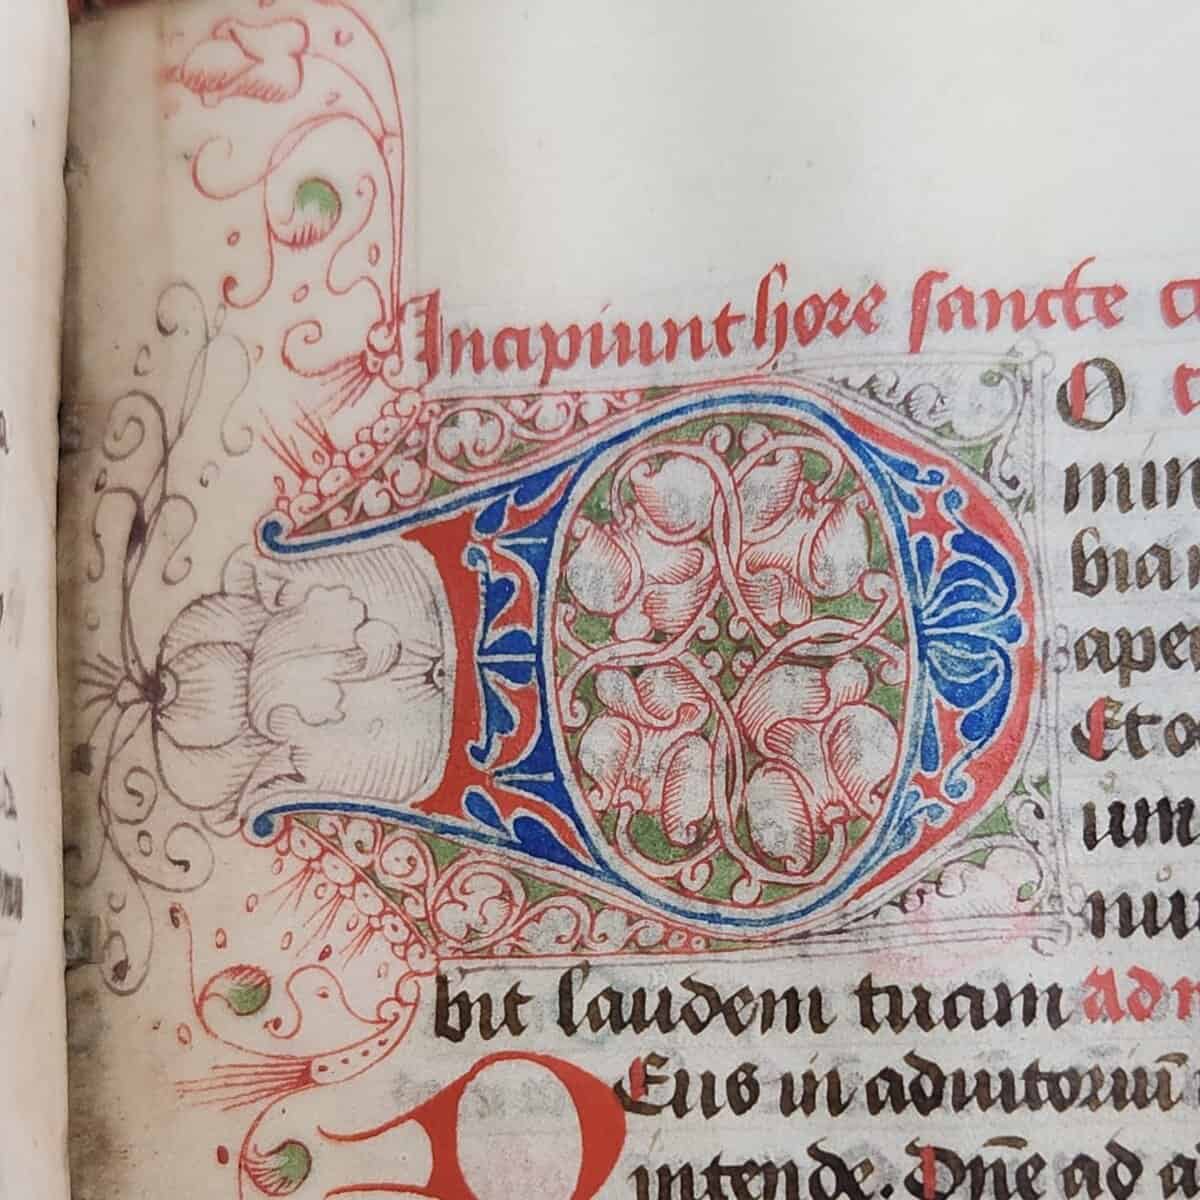 Incipiunt hore sancte
D O
min
bia
aper
Et o
um
nu
bit laudem tuam Ad
D Eus in adiutoriū
intende. Dn̄e ad a